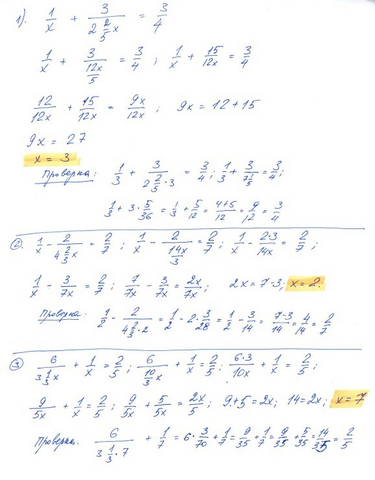 1). 1/x + 3/(2 2/5 x) = 3/4
1/x + 3/(12x/5) = 3/4 ; 1/x + 15/12x = 3/4
12/12x + 15/12x = 9x/12x ; 9x = 12 + 15
9x = 27
x = 3
Проверка: 1/3 + 3/(2 2/5 · 3) = 3/4 ; 1/3 + 3/(7 1/5) = 3/4 ;
1/3 + 3 · 5/36 = 1/3 + 5/12 = (4+5)/12 = 9/12 = 3/4
② 1/x - 2/(4 2/3 x) = 2/7 ; 1/x - 2/(14x/3) = 2/7 ; 1/x - 2·3/14x = 2/7 ;
1/x - 3/7x = 2/7 ; 7/7x - 3/7x = 2x/7x ; 2x = 7-3 ; x = 2
Проверка: 1/2 - 2/(4 2/3 · 2) = 1/2 - 2 · 3/28 = 1/2 - 3/14 = (7-3)/14 = 4/14 = 2/7
③ 6/(3 1/3 x) + 1/x = 2/5 ; 6/(10/3 x) + 1/x = 2/5 ; 6·3/10x + 1/x = 2/5 ;
9/5x + 1/x = 2/5 ; 9/5x + 5/5x = 2x/5x ; 9+5 = 2x ; 14 = 2x ; x = 7
Проверка. 6/(3 1/3 · 7) + 1/7 = 6 · 3/70 + 1/7 = 9/35 + 1/7 = 9/35 + 5/35 = 14/35 = 2/5